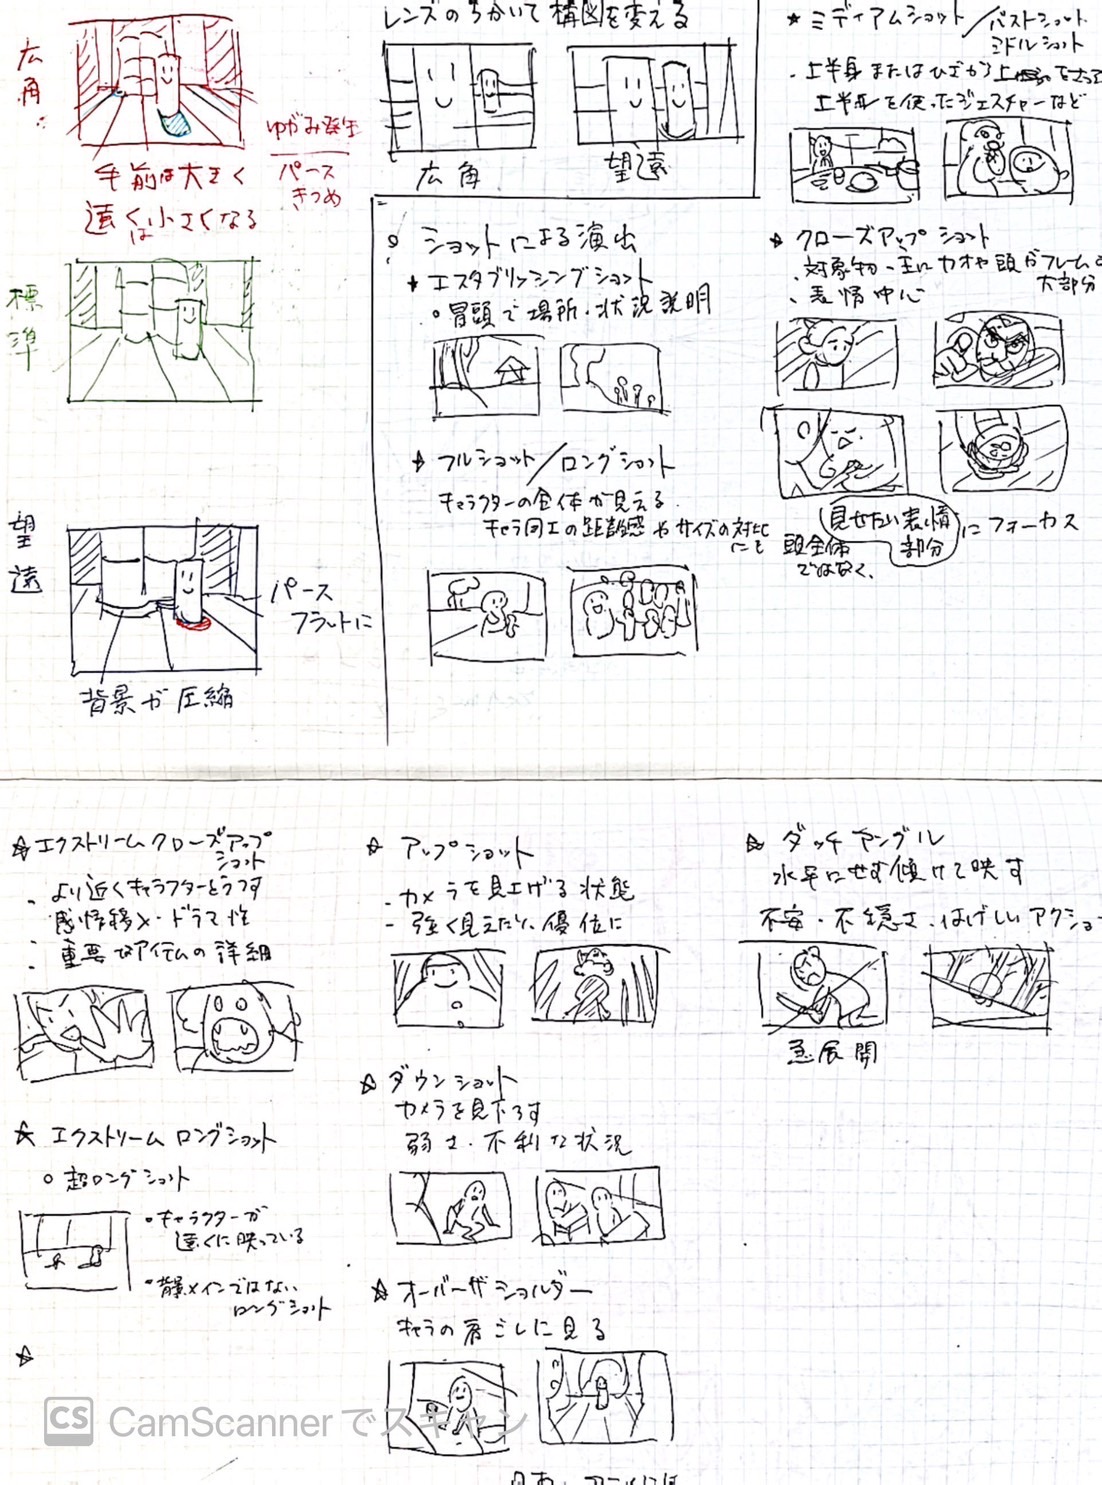 広角
手前は大きく
遠くは小さくなる
ゆがみ発生
パース
きつめ
標準
望遠
パース
フラットに
背景が圧縮
レンズのちがいで構図を変える
広角
望遠
ショットによる演出
★ エスタブリッシングショット
冒頭で場所・状況説明
★ フルショット/ロングショット
キャラクターの全体が見える
キャラ同士の距離感やサイズの対比
にも
★ ミディアムショット/バストショット
ミドルショット
・上半身またはひざから上
上半身を使ったジェスチャーなど
★ クローズアップショット
・対象物・主にカオや頭がフレームの
大部分
・表情中心
頭全体
ではなく、
見せたい表情
部分
にフォーカス
★ エクストリームクローズアップ
ショット
・より近くキャラクターをうつす
感情移入・ドラマ性
・重要なアイテムの詳細
★ エクストリームロングショット
○ 超ロングショット
・キャラクターが
遠くに映っている
・背景メインではない
ロングショット
★
★ アップショット
・カメラを見上げる状態
・強く見えたり、優位に
★ ダウンショット
カメラを見下ろす
弱さ・不利な状況
★ オーバーザショルダー
キャラの肩ごしに見る
★ ダッチアングル
水平にせず傾けて映す
不安・不穏さ・はげしいアクショ
急展開
CS CamScanner でスキャン